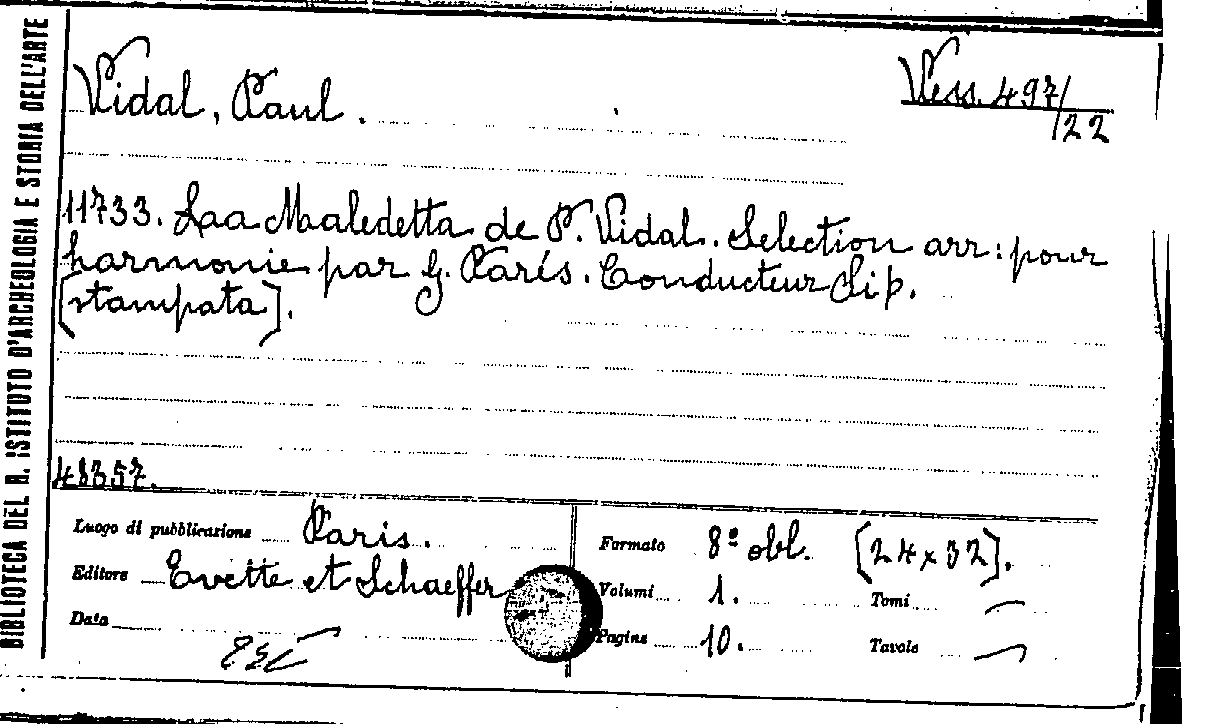 BIBLIOTECA DEL R. ISTITUTO D'ARCHEOLOGIA E STORIA DELL'ARTE
Vidal, Paul.
Vess. 497/22
11733. Laa Maledetta de P. Vidal. Selection arr: pour
harmonie par G. Parés. Conducteur Sib.
[stampata].
48357.
Luogo di pubblicazione Paris.
Editore Evette et Schaeffer
Data
Formato 8º obl. [24x32].
Volumi 1. Tomi —
Pagine 10. Tavole —